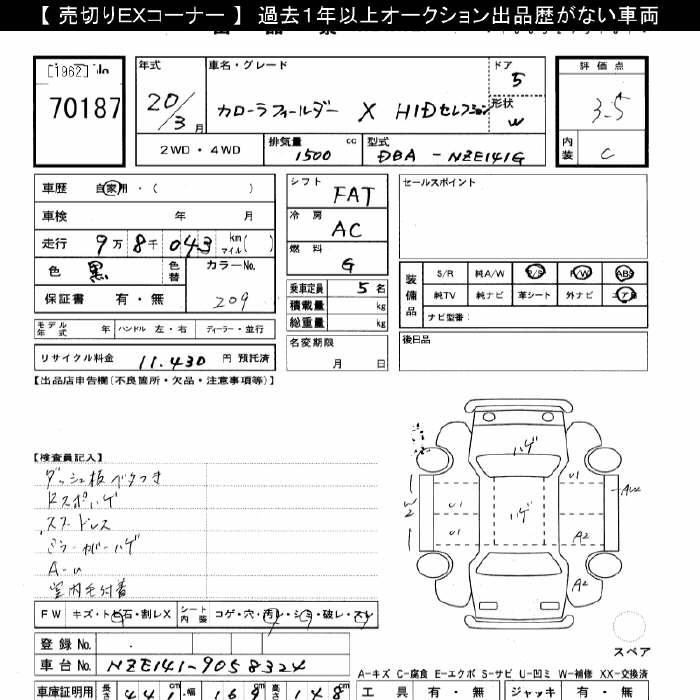 【 売切りEXコーナー 】 過去1年以上オークション出品歴がない車両
【1962】
70187
年式
20/3月
車名・グレード
カローラフィールダー X HIDセレクション
ドア
5
形状
W
評価点
3.5
内装
C
2WD・4WD
排気量
1500 cc
型式
DBA - NZE141G
車歴 自家用・(　　)
車検 年 月
走行 9万 8千 043 km マイル( )
色 黒
色替
カラーNo.
209
保証書 有・無
モデル年式 年 ハンドル 左・右 ディーラー・並行
リサイクル料金 11.430 円 預託済
シフト
FAT
冷房
AC
燃料
G
乗車定員 5 名
積載量 kg
総重量 kg
名変期限
月 日
セールスポイント
装備品
S/R 純A/W P/S P/W ABS
純TV 純ナビ 革シート 外ナビ エアB
ナビ型番:
後日品
【出品店申告欄(不良箇所・欠品・注意事項等)】
【検査員記入】
ダッシュ板ベタつき
ドスポハゲ
スフードレス
ミラーカバーハゲ
A-U
室内毛付着
ハゲ
ハゲ
U1
U1
U1
A2
A2
W2
FW キズ・トビ石・割レX シート内装 コゲ・穴・汚レ・シミ・破レ・スレ
登録No.
車台No. NZE141-9058324
車庫証明用 長さ 441 幅 169 高さ 148
スペア
A-キズ C-腐食 E-エクボ S-サビ U-凹ミ W-補修 XX-交換済
工具 有・無 ジャッキ 有・無